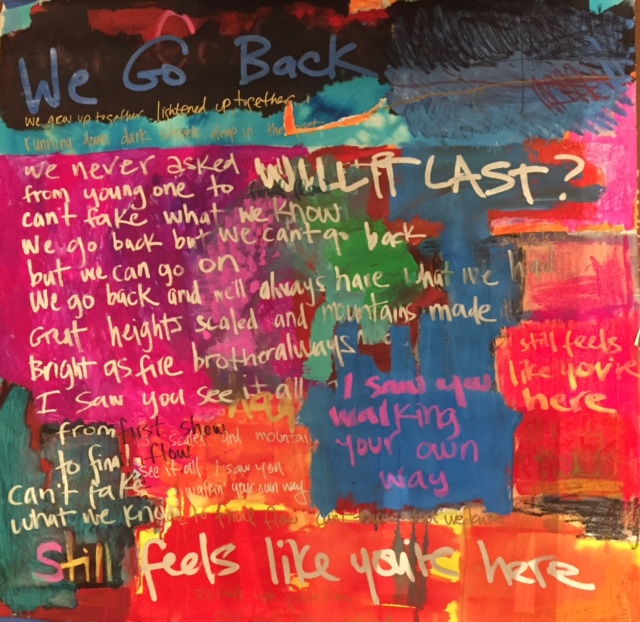 We Go Back
we grew up together lightened up together
running down dark streets deep in the
we never asked WILL IT LAST?
from young one to
can't fake what we know
we go back but we can't go back
but we can go on
We go back and we'll always have what we had
Great heights scaled and mountains made
Bright as fire brother always
I saw you see it all
I saw you
walking
your own
way
I still feels
like you're
here
from first show
scaled and mountain
to final flow
see it all I saw you
can't fake
walkin' your own way
what we know
final flow can't
Still feels like you're here